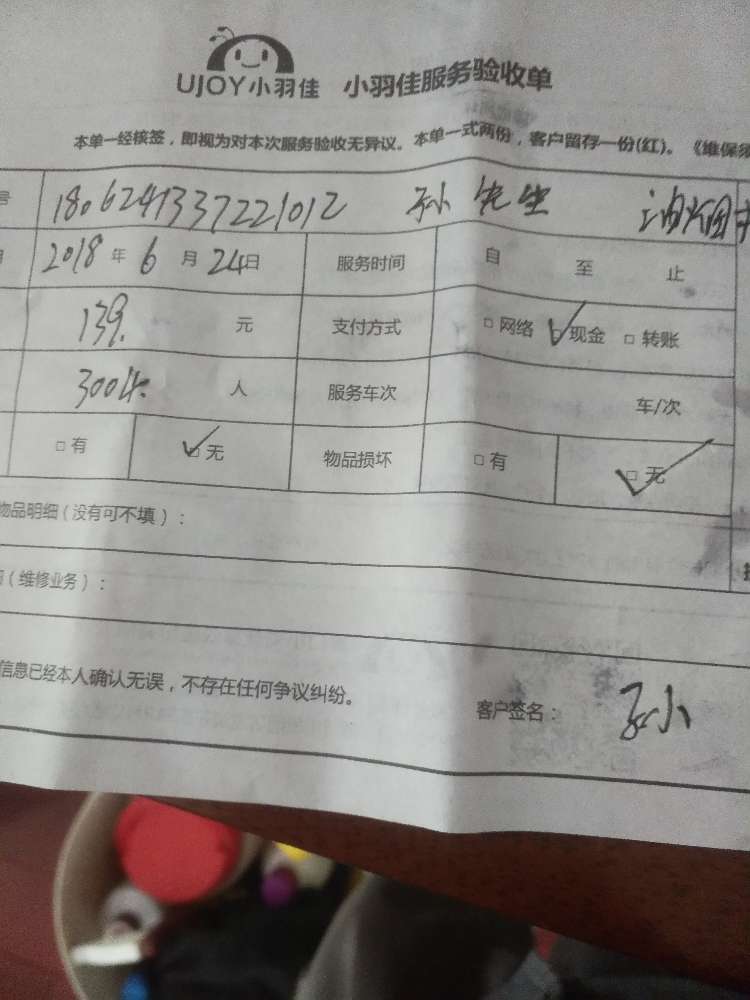 UJOY小羽佳 小羽佳服务验收单
本单一经核签，即视为对本次服务验收无异议。本单一式两份，客户留存一份(红)。《维保须
号 1806241337221012 孙先生 油烟
2018年6月24日 服务时间 自 至 止
139. 元 支付方式 □网络 ☑现金 □转账
人 服务车次 车/次
□有 ☑无 物品损坏 □有 ☑无
物品明细（没有可不填）：
（维修业务）：
信息已经本人确认无误，不存在任何争议纠纷。
客户签名：孙小